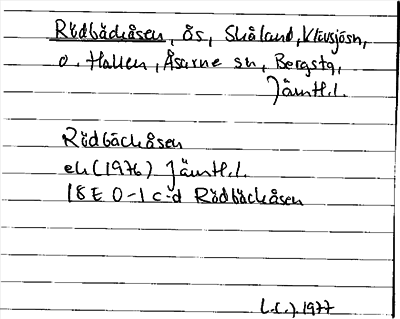 Rödbäckåsen, ås, Skåland, Klövsjösn,
o. Hallen, Åsarne sn, Bergstg,
Jämtl.l.
Rödbäckåsen
ek (1976) Jämtl.l.
18E 0-1 c-d Rödbäckåsen
1977